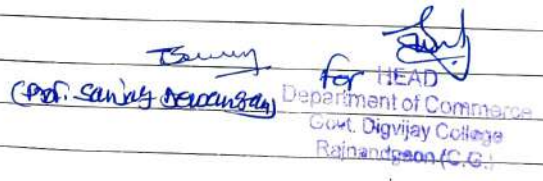 for HEAD
(Prof. Sanjay Dewangan) Department of Commerce
Govt. Digvijay College
Rajnandgaon (C.G.)